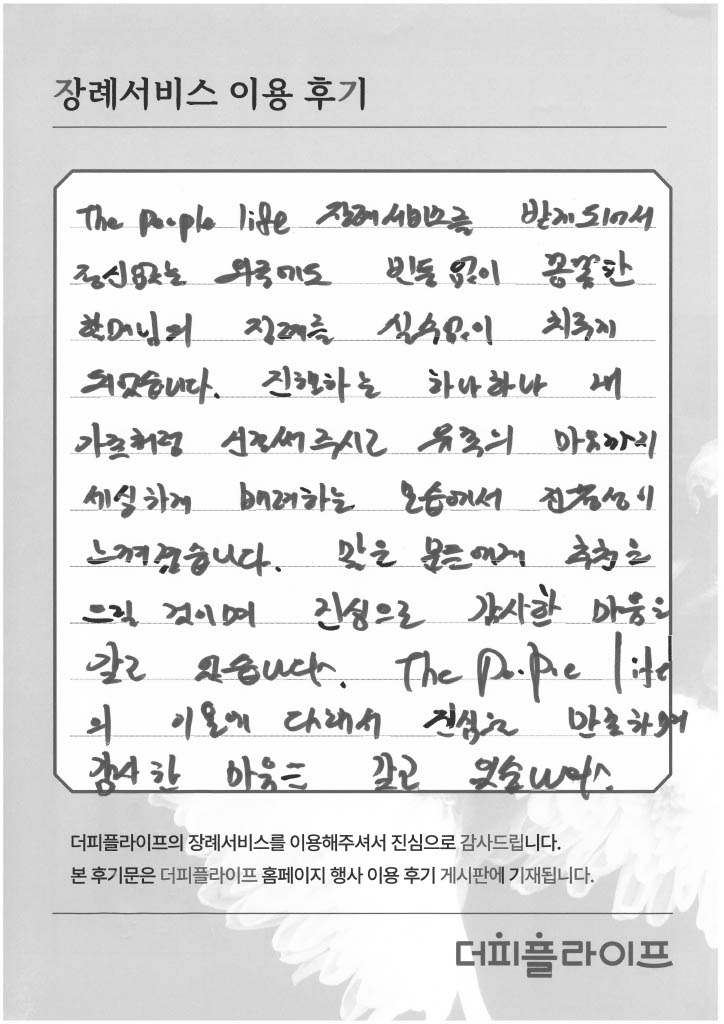 장례서비스 이용 후기
The people life 장례서비스를 받게 되어서
정신없는 와중에도 빈틈없이 꼼꼼한
할머님의 장례를 실수없이 치루게
되었습니다. 진행하는 하나하나 내
가족처럼 신경써주시고 유족의 마음까지
세심하게 배려하는 모습에서 진정성이
느껴졌습니다. 많은 분들에게 추천을
드릴 것이며 진심으로 감사한 마음을
갖고 있습니다. The People life
의 이용에 대해서 진심으로 만족하며
감사한 마음을 갖고 있습니다.
더피플라이프의 장례서비스를 이용해주셔서 진심으로 감사드립니다.
본 후기문은 더피플라이프 홈페이지 행사 이용 후기 게시판에 기재됩니다.
더피플라이프